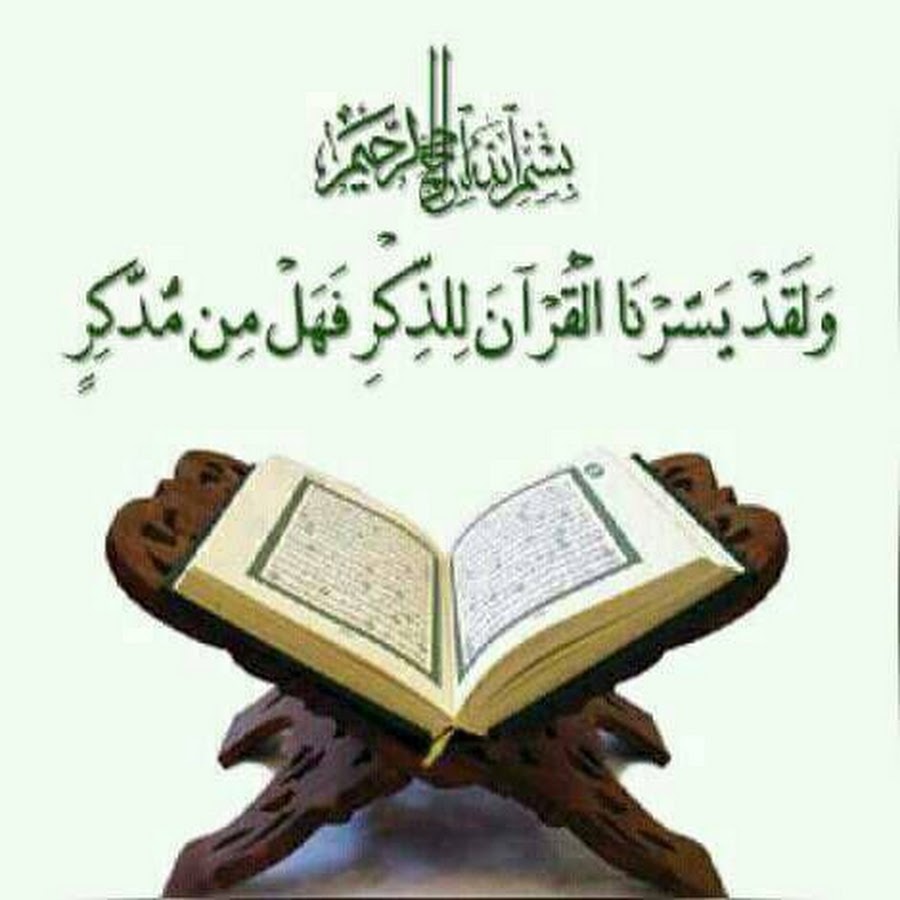 بسم الله الرحمن الرحيم
وَلَقَدْ يَسَّرْنَا الْقُرْآنَ لِلذِّكْرِ فَهَلْ مِن مُّدَّكِرٍ